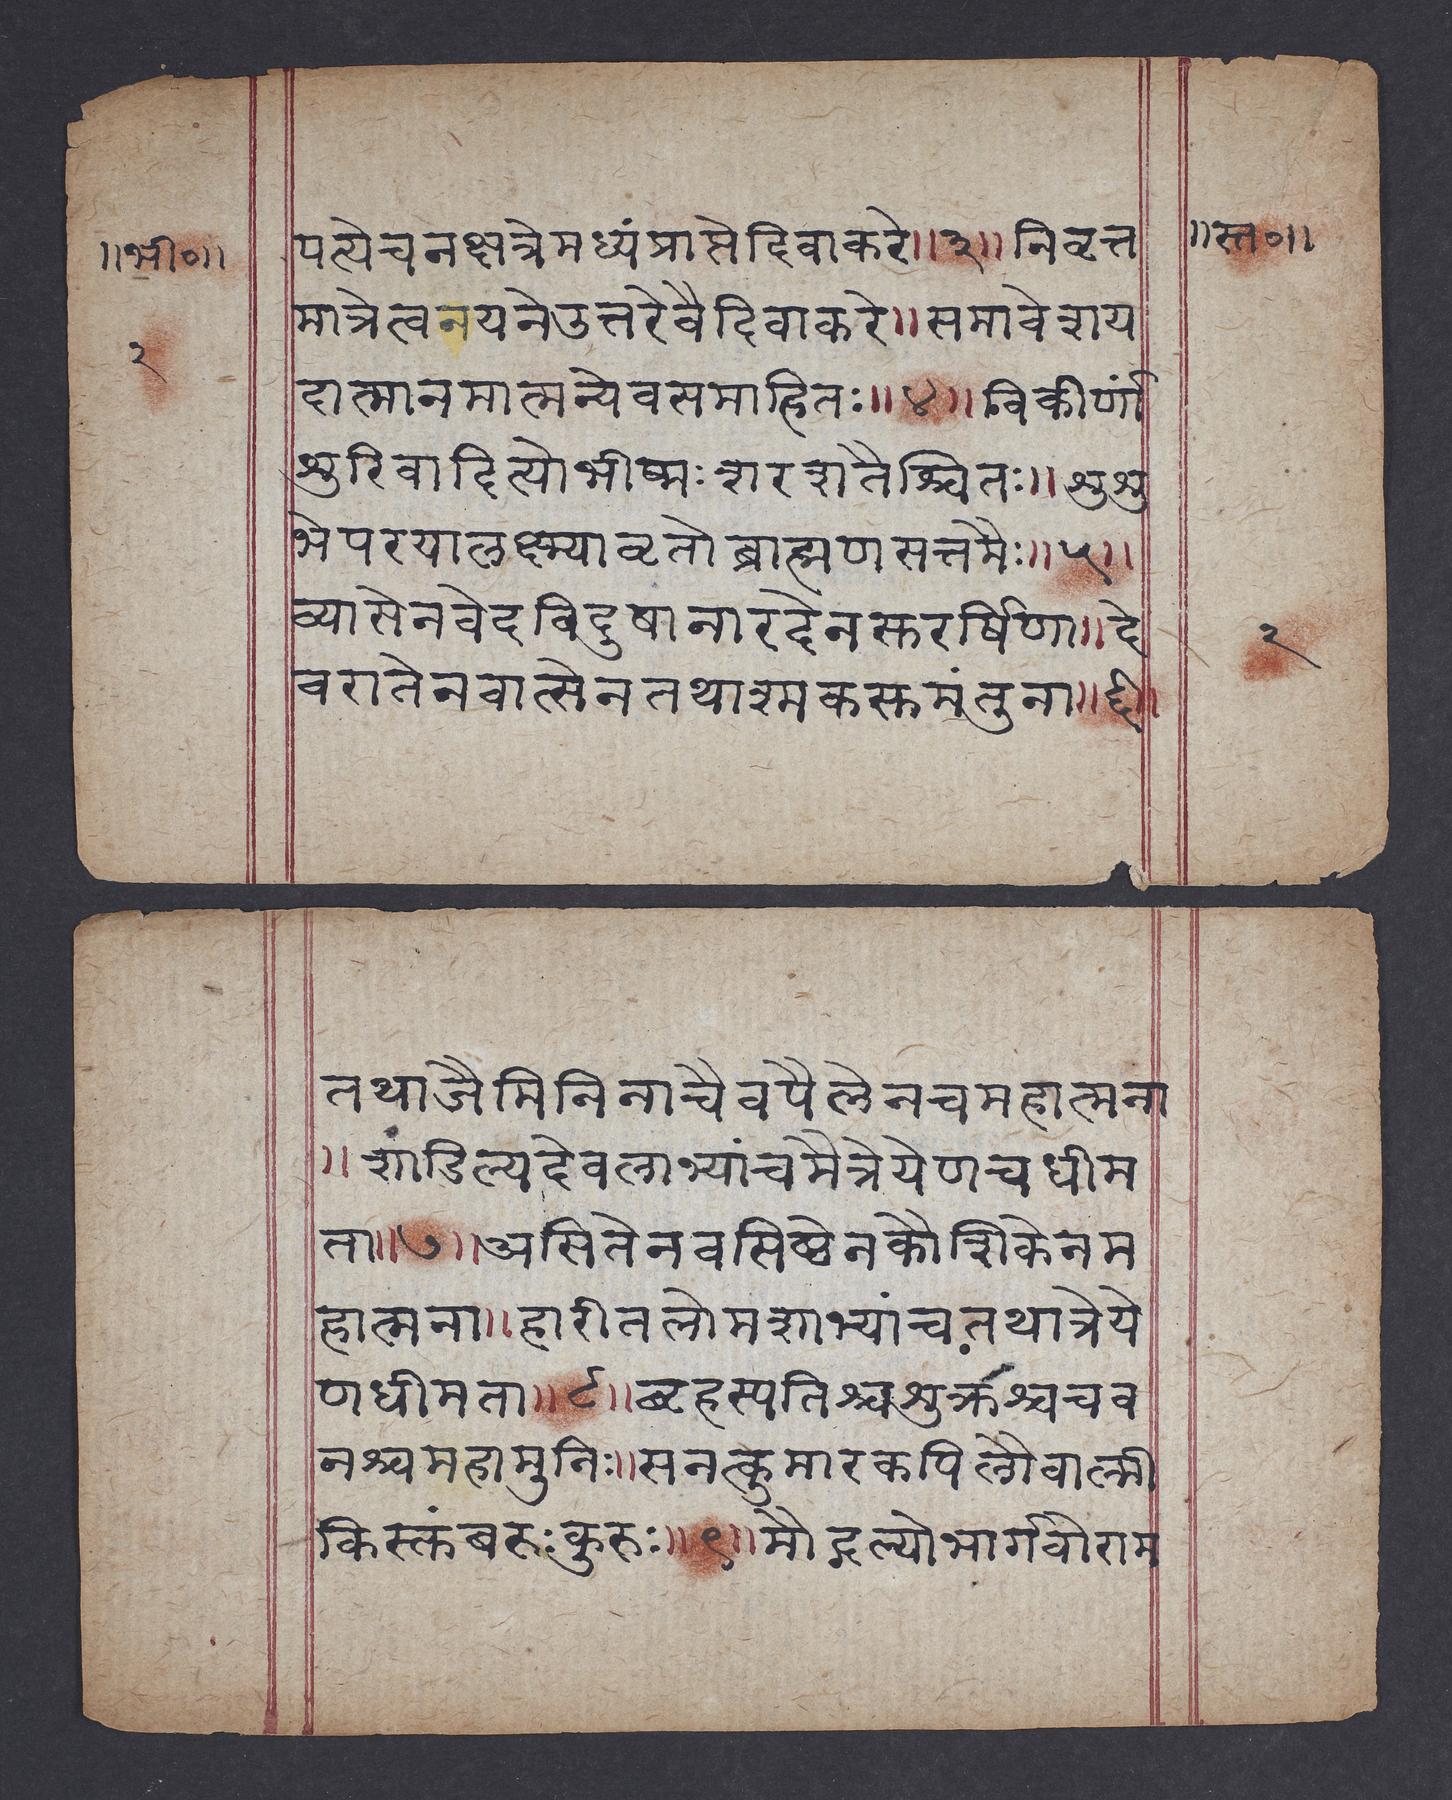 ॥भी०॥
२
पत्येचनक्षत्रेमध्यंप्राप्तेदिवाकरे॥३॥निवृत्त
मात्रेत्वनयनेउत्तरेवैदिवाकरे॥समावेशय
दात्मानमात्मन्येवसमाहितः॥४॥विकीर्णां
शुरिवादित्योभीष्मःशरशतैश्चितः॥शुशु
भेपरयालक्ष्म्यावृतोब्राह्मणसत्तमैः॥५॥
व्यासेनवेदविदुषानारदेनसुरर्षिणा॥दे
वरातेनवात्सेनतथाश्मकसुमंतुना॥६॥
॥स्त०॥
२
तथाजैमिनिनाचैवपैलेनचमहात्मना
॥शांडिल्यदेवलाभ्यांचमैत्रेयेणचधीम
ता॥७॥असितेनवसिष्ठेनकौशिकेनम
हात्मना॥हारीतलोमशाभ्यांचतथात्रेये
णधीमता॥८॥बृहस्पतिश्चशुक्रश्चचव
नश्चमहामुनिः॥सनत्कुमारकपिलौवाल्मी
किस्तुंबरुःकुरुः॥९॥मौद्गल्योभार्गवोराम